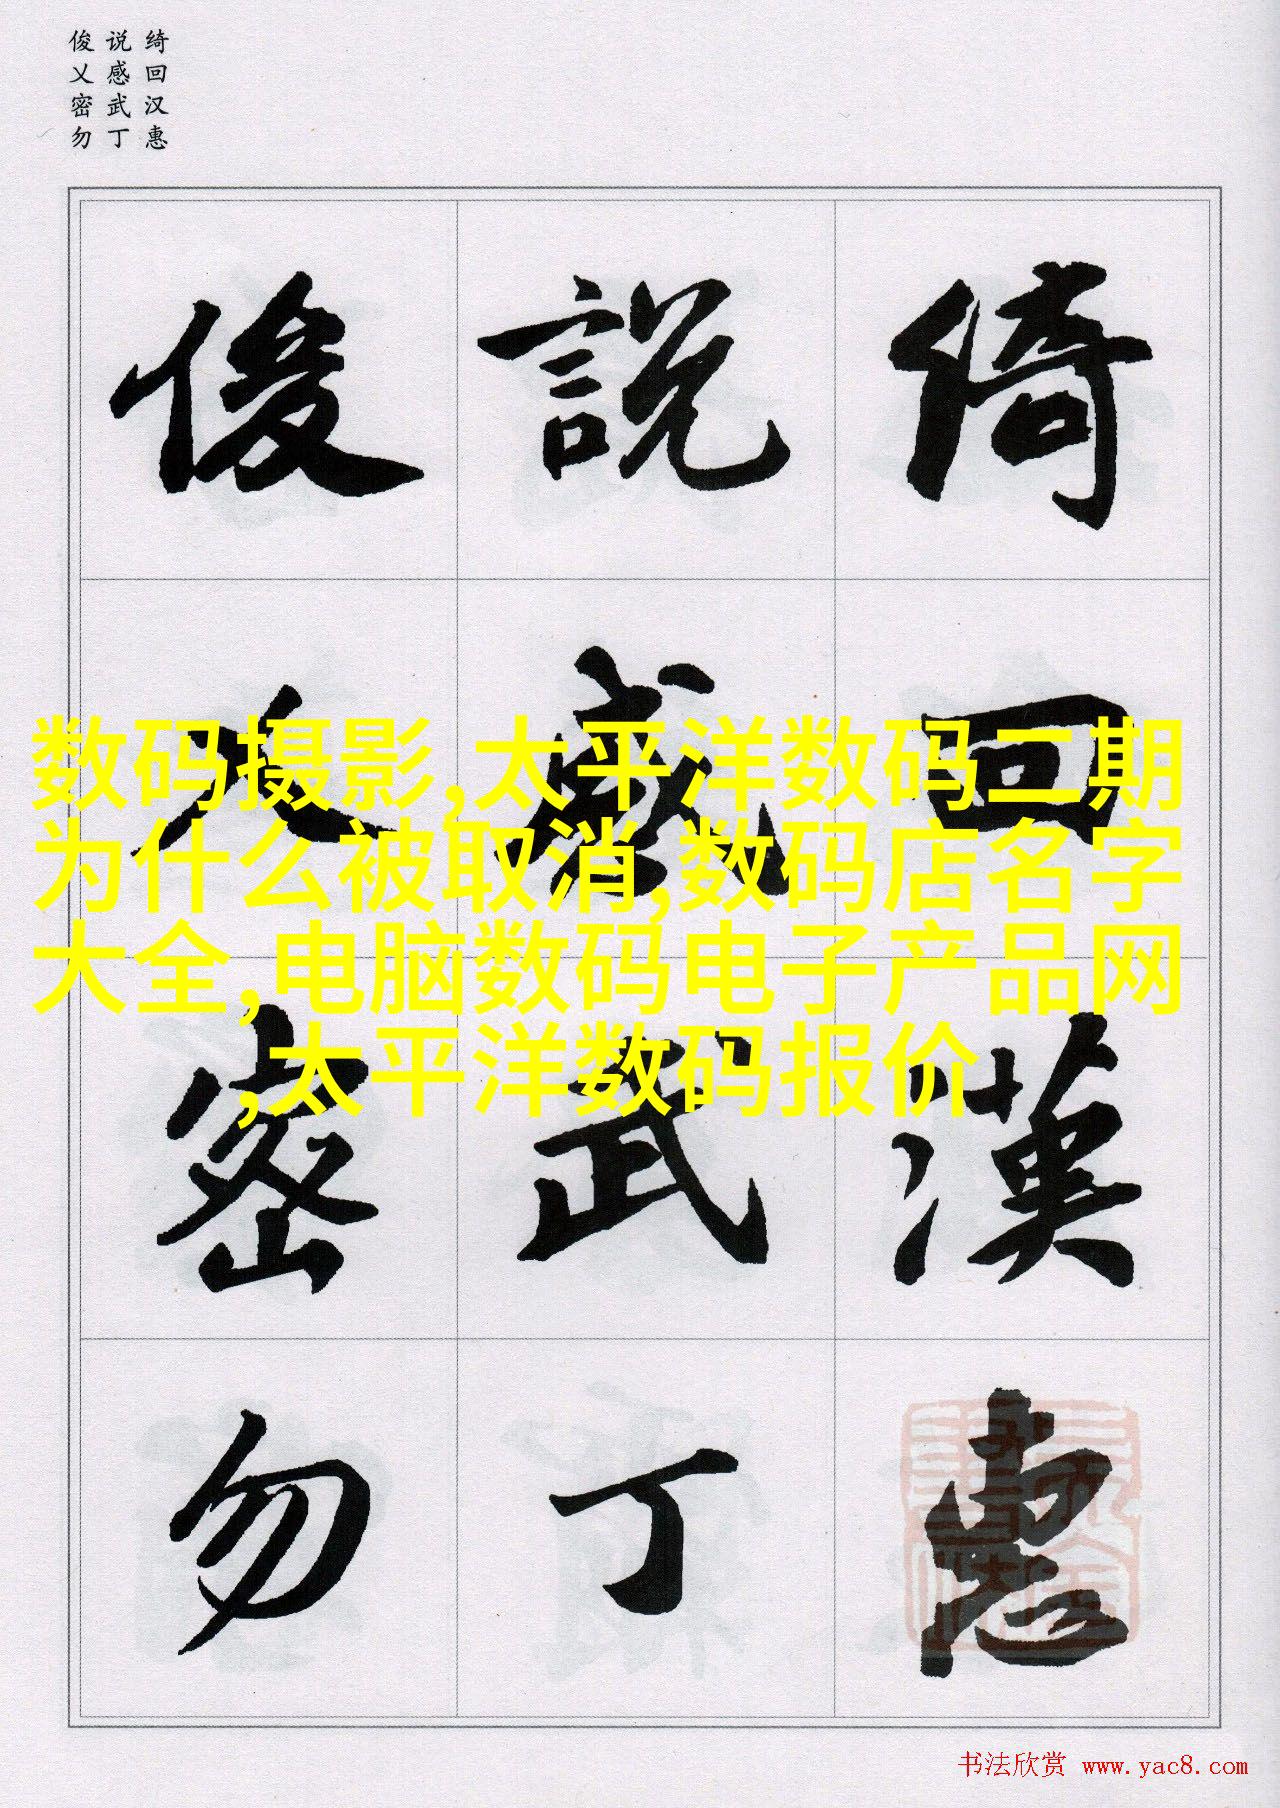 绮回汉惠
说感武丁
俊乂密勿
綺 說 俊
回 感 乂
漢 武 密
惠 丁 勿
数码摄影,太平洋数码二期
为什么被取消,数码店名字
大全,电脑数码电子产品网
,太平洋数码报价
书法欣赏 www.yac8.com